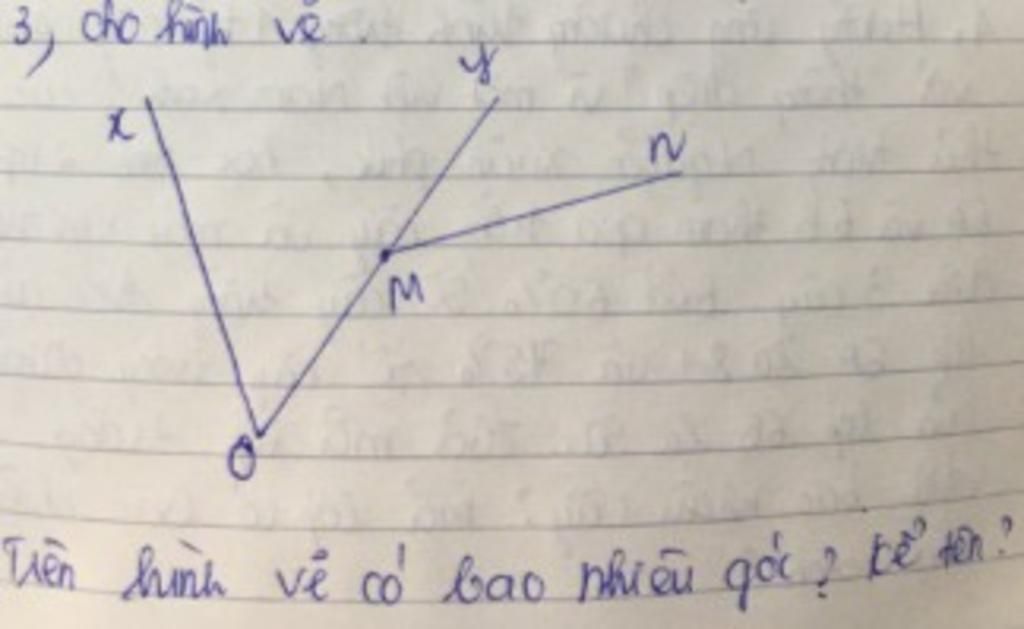 3, cho hình vẽ.
y
x
N
M
O
Trên hình vẽ có bao nhiêu góc? kể tên?